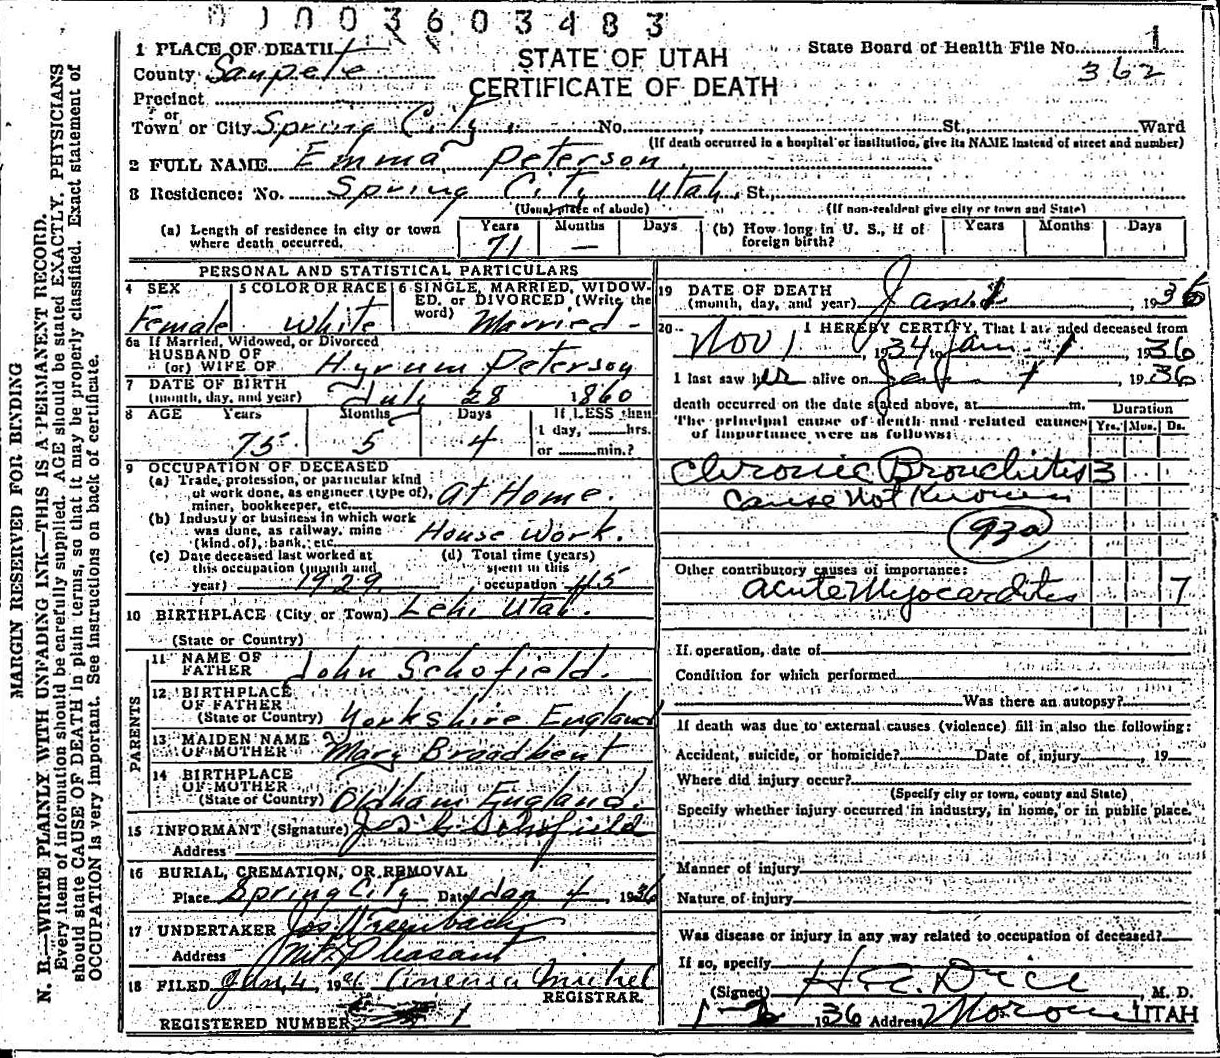 0 1 0 0 3 6 0 3 4 8 3
1 PLACE OF DEATH
County Sanpete
Precinct
or
Town or City Spring City No. St., Ward
STATE OF UTAH
CERTIFICATE OF DEATH
State Board of Health File No. 1
362
(If death occurred in a hospital or institution, give its NAME instead of street and number)
2 FULL NAME Emma Peterson
3 Residence: No. Spring City Utah St.
(Usual place of abode) (If non-resident give city or town and State)
(a) Length of residence in city or town where death occurred. Years 71 Months — Days
(b) How long in U. S., if of foreign birth? Years Months Days
PERSONAL AND STATISTICAL PARTICULARS
4 SEX Female
5 COLOR OR RACE White
6 SINGLE, MARRIED, WIDOWED, or DIVORCED (Write the word) Married
6a If Married, Widowed, or Divorced
HUSBAND OF
(or) WIFE OF Hyrum Peterson
7 DATE OF BIRTH
(month, day, and year) July 28 1860
8 AGE Years Months Days If LESS than
75 5 4 1 day, hrs.
or min.?
9 OCCUPATION OF DECEASED
(a) Trade, profession, or particular kind
of work done, as engineer (type of),
miner, bookkeeper, etc. At Home.
(b) Industry or business in which work
was done, as railway, mine
(kind of), bank, etc. House Work.
(c) Date deceased last worked at
this occupation (month and
year) 1929
(d) Total time (years)
spent in this
occupation 45
10 BIRTHPLACE (City or Town) Lehi Utah.
(State or Country)
PARENTS
11 NAME OF
FATHER John Schofield.
12 BIRTHPLACE
OF FATHER
(State or Country) Yorkshire England
13 MAIDEN NAME
OF MOTHER Mary Broadbent
14 BIRTHPLACE
OF MOTHER
(State or Country) Oldham England.
15 INFORMANT (Signature) Schofield
Address
16 BURIAL, CREMATION, OR REMOVAL
Place Spring City Date Jan 4, 1936
17 UNDERTAKER
Address Mt. Pleasant
18 FILED Jan, 4, 19
REGISTRAR.
REGISTERED NUMBER 1
19 DATE OF DEATH
(month, day, and year) Jan. 1, 1936
20 I HEREBY CERTIFY, That I attended deceased from
Nov 1, 1934 to Jan. 1, 1936
I last saw her alive on Jan 1, 1936
death occurred on the date stated above, at m.
The principal cause of death and related causes
of importance were as follows:
Duration
Yrs. Mos. Ds.
Chronic Bronchitis 3
Cause Not Known
93a
Other contributory causes of importance:
Acute Myocarditis 7
If operation, date of
Condition for which performed
Was there an autopsy?
If death was due to external causes (violence) fill in also the following:
Accident, suicide, or homicide? Date of injury , 19
Where did injury occur?
(Specify city or town, county and State)
Specify whether injury occurred in industry, in home, or in public place.
Manner of injury
Nature of injury
Was disease or injury in any way related to occupation of deceased?
If so, specify
(Signed) M. D.
1- 1936 Address Moroni UTAH
MARGIN RESERVED FOR BINDING
N. B.—WRITE PLAINLY WITH UNFADING INK—THIS IS A PERMANENT RECORD.
Every item of information should be carefully supplied. AGE should be stated EXACTLY. PHYSICIANS
should state CAUSE OF DEATH in plain terms, so that it may be properly classified. Exact statement of
OCCUPATION is very important. See instructions on back of certificate.